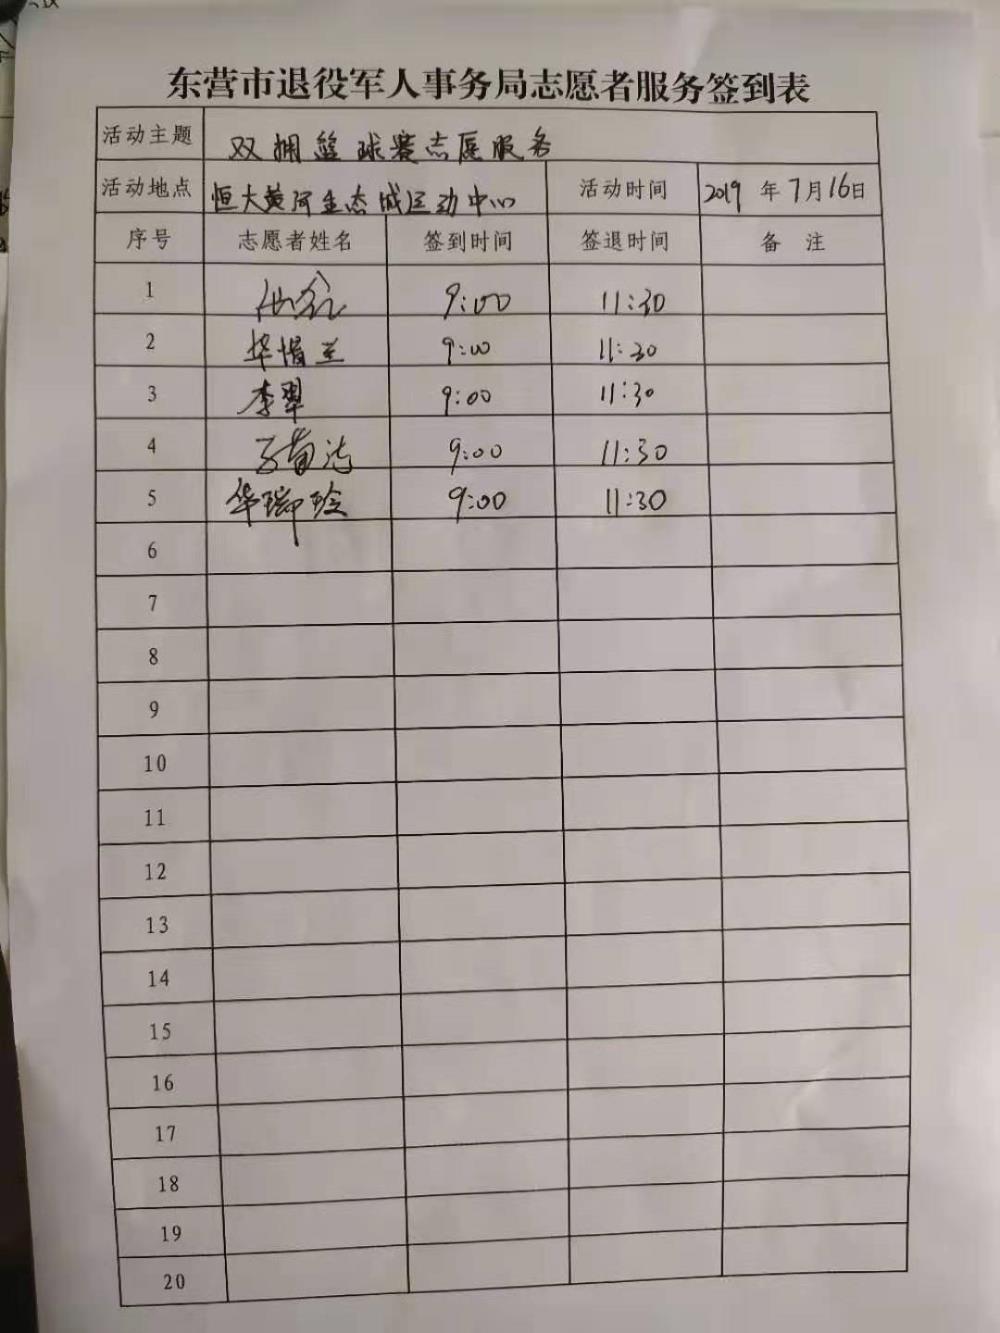 东营市退役军人事务局志愿者服务签到表
活动主题 双拥篮球赛志愿服务
活动地点 恒大黄河生态城运动中心 活动时间 2019 年 7月16日
序号 志愿者姓名 签到时间 签退时间 备 注
1 9:00 11:30
2 华娟兰 9:00 11:30
3 李翠 9:00 11:30
4 9:00 11:30
5 华瑞玲 9:00 11:30
6
7
8
9
10
11
12
13
14
15
16
17
18
19
20